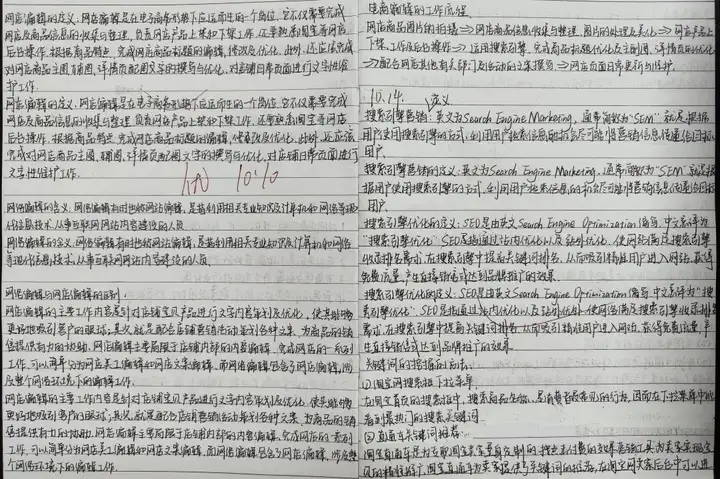 网店编辑的定义：网店编辑是在电子商务形势下应运而生的一个岗位，它不仅需要完成
网店及商品信息的收集与整理，负责网店产品上架和下架工作，还要熟悉淘宝等网店
后台操作，根据商品特点，完成网店商品标题的编辑、修改及优化，此外，还应该完成
对网店商品主图、辅图、详情页配图文字的撰写与优化，对店铺日常页面进行文字性维
护工作。
网店编辑的定义：网店编辑是在电子商务形势下应运而生的一个岗位，它不仅需要完成
网店及商品信息的收集与整理，负责网店产品上架和下架工作，还要熟悉淘宝等网店
后台操作，根据商品特点，完成网店商品标题的编辑、修改及优化，此外，还应该
完成对网店商品主图、辅图、详情页配图文字的撰写与优化，对店铺日常页面进行
文字性维护工作。
10.10
网络编辑的含义：网络编辑有时也称网站编辑，是指利用相关专业知识及计算机和网络等现
代信息技术，从事互联网网站内容建设的人员
网络编辑的含义：网络编辑有时也称网站编辑，是指利用相关专业知识及计算机和网络
等现代信息技术，从事互联网网站内容建设的人员。
网络编辑与网店编辑的区别：
网店编辑的主要工作内容是针对店铺宝贝产品进行文字内容策划及优化，使其能够
更好地吸引客户的眼球，其次，就是配合店铺营销活动策划各种文案，为商品的销
售提供有力的协助。网店编辑主要局限于店铺内部的内容编辑，完成网店的一系列
工作，可以简单分为网店美工编辑和网店文案编辑，而网络编辑包含了网店编辑，涉
及整个网络环境下的编辑工作。
网店编辑的主要工作内容是针对店铺宝贝产品进行文字内容策划及优化，使其能够
更好地吸引客户的眼球，其次，就是配合店铺营销活动策划各种文案，为商品的销
售提供有力的协助。网店编辑主要局限于店铺内部的内容编辑，完成网店的一系列
工作，可以简单分为网店美工编辑和网店文案编辑，而网络编辑包含了网店编辑，涉及整
个网络环境下的编辑工作。
电商编辑的工作流程
网店商品图片的拍摄⇒网店商品信息的收集与整理，图片的处理及美化⇒网店产品上
下架工作及后台操作⇒运用搜索引擎，完成商品标题优化及主副图、详情页的优化
⇒配合网店其他有关部门及活动的文案撰写⇒网店页面日常更新与维护。
10.14.
定义
搜索引擎营销：英文为Search Engine Marketing，通常简称为"SEM"就是根据
用户使用搜索引擎的方式，利用用户检索信息的机会尽可能将营销信息传递给目标
用户。
搜索引擎营销的定义：英文为Search Engine Marketing，通常简称为"SEM"就是根
据用户使用搜索引擎的方式，利用用户检索信息的机会尽可能将营销信息传递给目标
用户。
搜索引擎优化的定义：SEO是由英文Search Engine Optimization缩写，中文意译为
"搜索引擎优化"。SEO是指通过站内优化以及站外优化，使网站满足搜索引擎
收录排名需求，在搜索引擎中提高关键词排名，从而吸引精准用户进入网站，获得
免费流量，产生直接销售或达到品牌推广的效果。
搜索引擎优化的定义：SEO是由英文Search Engine Optimization缩写，中文意译为"搜
索引擎优化"。SEO是指通过站内优化以及站外优化，使网站满足搜索引擎收录排名
需求，在搜索引擎中提高关键词排名，从而吸引精准用户进入网站，获得免费流量，产
生直接销售或达到品牌推广的效果
关键词的挖掘的方法：
①淘宝网搜索框下拉菜单
在淘宝首页的搜索框中，搜索商品名称，是消费者最常见的行为，因而在下拉菜单中能
看到最热门的搜索关键词
②直通车关键词推荐